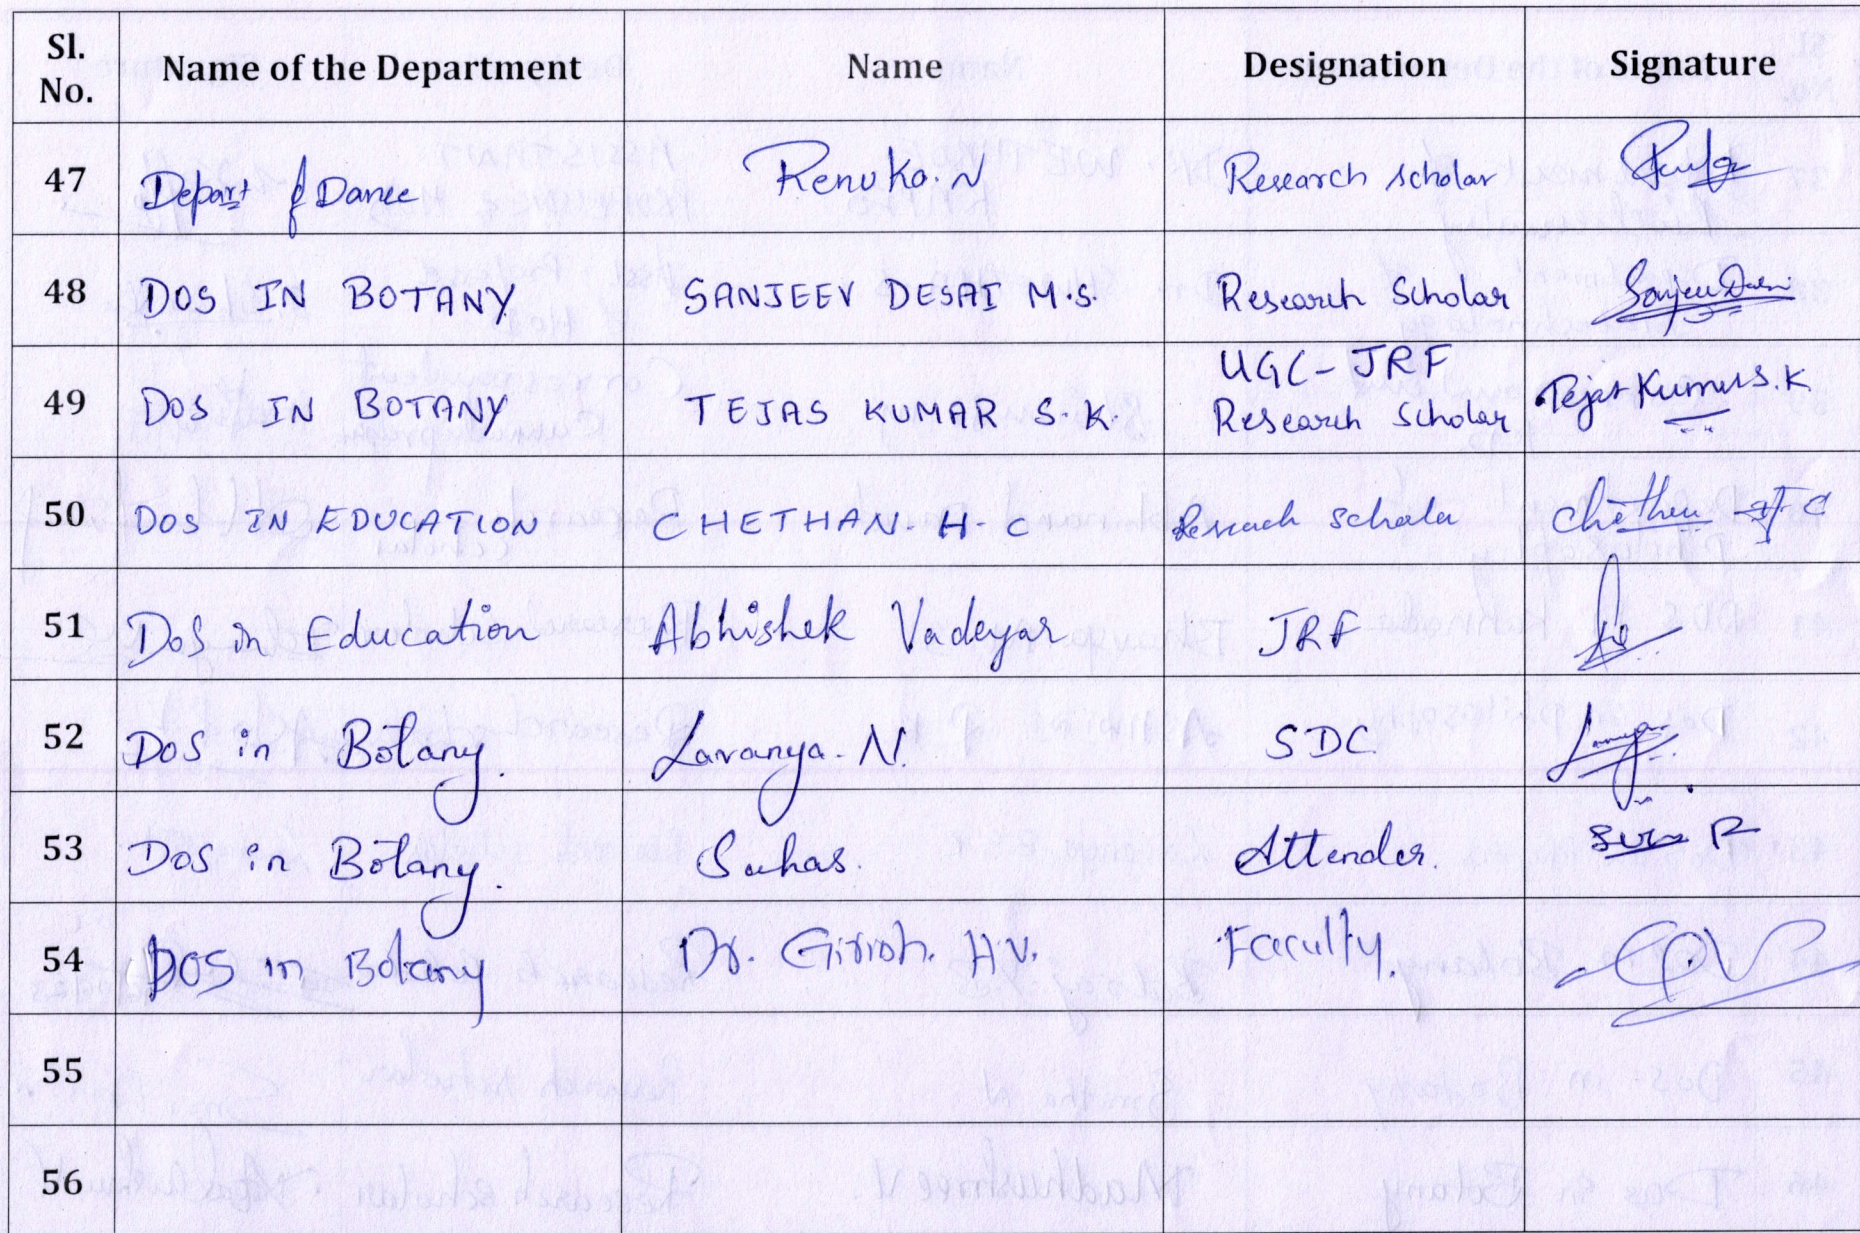 Sl. No. Name of the Department Name Designation Signature
47 Depart of Dance Renuka. N Research scholar
48 DOS IN BOTANY. SANJEEV DESAI M.S. Research Scholar Sanjeev Desai
49 DOS IN BOTANY TEJAS KUMAR S.K. UGC-JRF Research Scholar Tejas Kumar S.K
50 DOS IN EDUCATION CHETHAN. H C Research scholar Chethan H C
51 DoS in Education Abhishek Vadeyar JRF
52 DOS in Botany. Lavanya. N. SDC
53 DOS in Botany. Suhas. Attender.
54 DOS in Botany Dr. Girish. H.V. Faculty.
55
56